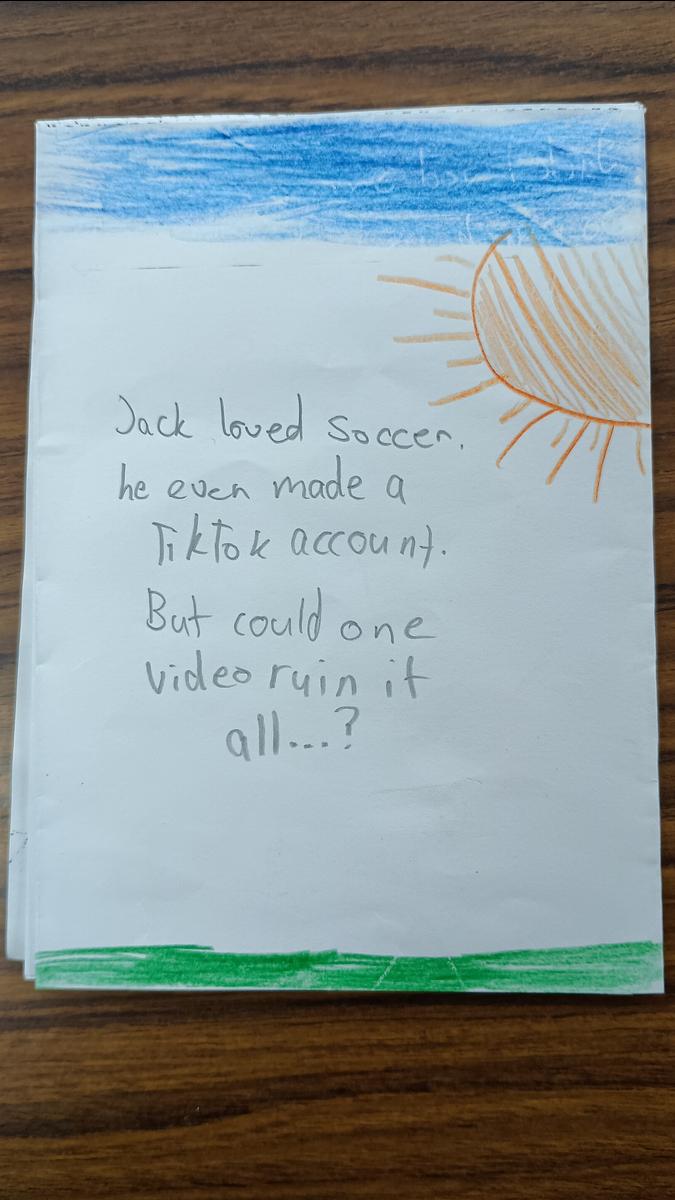 Jack loved soccer.
he even made a
TikTok account.
But could one
video ruin it
all...?